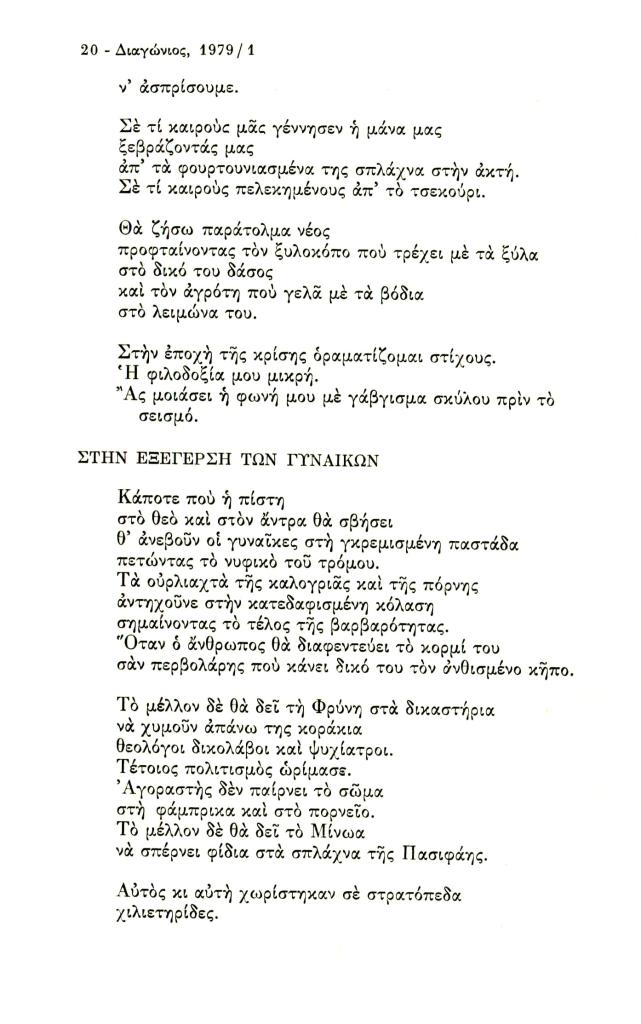 20 - Διαγώνιος, 1979 / 1
ν' ἀσπρίσουμε.
Σὲ τί καιροὺς μᾶς γέννησεν ἡ μάνα μας
ξεβράζοντάς μας
ἀπ' τὰ φουρτουνιασμένα της σπλάχνα στὴν ἀκτή.
Σὲ τί καιροὺς πελεκημένους ἀπ' τὸ τσεκούρι.
Θὰ ζήσω παράτολμα νέος
προφταίνοντας τὸν ξυλοκόπο ποὺ τρέχει μὲ τὰ ξύλα
στὸ δικό του δάσος
καὶ τὸν ἀγρότη ποὺ γελᾶ μὲ τὰ βόδια
στὸ λειμώνα του.
Στὴν ἐποχὴ τῆς κρίσης ὁραματίζομαι στίχους.
Ἡ φιλοδοξία μου μικρή.
Ἂς μοιάσει ἡ φωνή μου μὲ γάβγισμα σκύλου πρὶν τὸ
σεισμό.
ΣΤΗΝ ΕΞΕΓΕΡΣΗ ΤΩΝ ΓΥΝΑΙΚΩΝ
Κάποτε ποὺ ἡ πίστη
στὸ θεὸ καὶ στὸν ἄντρα θὰ σβήσει
θ' ἀνεβοῦν οἱ γυναῖκες στὴ γκρεμισμένη παστάδα
πετώντας τὸ νυφικὸ τοῦ τρόμου.
Τὰ οὐρλιαχτὰ τῆς καλογριᾶς καὶ τῆς πόρνης
ἀντηχοῦνε στὴν κατεδαφισμένη κόλαση
σημαίνοντας τὸ τέλος τῆς βαρβαρότητας.
Ὅταν ὁ ἄνθρωπος θὰ διαφεντεύει τὸ κορμί του
σὰν περβολάρης ποὺ κάνει δικό του τὸν ἀνθισμένο κῆπο.
Τὸ μέλλον δὲ θὰ δεῖ τὴ Φρύνη στὰ δικαστήρια
νὰ χυμοῦν ἀπάνω της κοράκια
θεολόγοι δικολάβοι καὶ ψυχίατροι.
Τέτοιος πολιτισμὸς ὡρίμασε.
Ἀγοραστὴς δὲν παίρνει τὸ σῶμα
στὴ φάμπρικα καὶ στὸ πορνεῖο.
Τὸ μέλλον δὲ θὰ δεῖ τὸ Μίνωα
νὰ σπέρνει φίδια στὰ σπλάχνα τῆς Πασιφάης.
Αὐτὸς κι αὐτὴ χωρίστηκαν σὲ στρατόπεδα
χιλιετηρίδες.